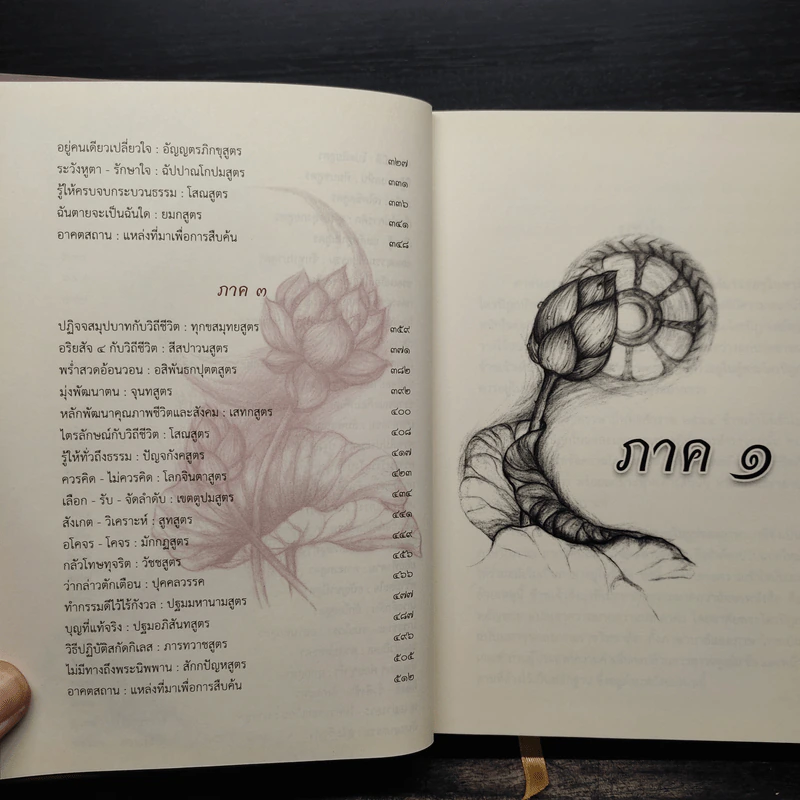 อยู่คนเดียวเปลี่ยวใจ : อัญญตรภิกขุสูตร ๓๒๗
ระวังหูตา - รักษาใจ : ฉัปปาณโกปมสูตร ๓๓๑
รู้ให้ครบจบกระบวนธรรม : โสณสูตร ๓๓๖
ฉันตายจะเป็นฉันใด : ยมกสูตร ๓๔๑
อาคตสถาน : แหล่งที่มาเพื่อการสืบค้น ๓๔๘
ภาค ๓
ปฏิจจสมุปบาทกับวิถีชีวิต : ทุกขสมุทยสูตร ๓๕๙
อริยสัจ ๔ กับวิถีชีวิต : สีสปาวนสูตร ๓๗๑
พร่ำสวดอ้อนวอน : อสิพันธกปุตตสูตร ๓๘๒
มุ่งพัฒนาตน : จุนทสูตร ๓๙๒
หลักพัฒนาคุณภาพชีวิตและสังคม : เสทกสูตร ๔๐๐
ไตรลักษณ์กับวิถีชีวิต : โสณสูตร ๔๐๘
รู้ให้ทั่วถึงธรรม : ปัญจกังคสูตร ๔๑๗
ควรคิด - ไม่ควรคิด : โลกจินตาสูตร ๔๒๓
เลือก - รับ - จัดลำดับ : เขตตูปมสูตร ๔๓๔
สังเกต - วิเคราะห์ : สูทสูตร ๔๔๑
อโคจร - โคจร : มักกฏสูตร ๔๔๙
กลัวโทษทุจริต : วัชชสูตร ๔๕๖
ว่ากล่าวตักเตือน : ปุคคลวรรค ๔๖๖
ทำกรรมดีไว้ไร้กังวล : ปฐมมหานามสูตร ๔๗๗
บุญที่แท้จริง : ปฐมอภิสันทสูตร ๔๘๗
วิธีปฏิบัติสกัดกิเลส : ภารทวาชสูตร ๔๙๖
ไม่มีทางถึงพระนิพพาน : สักกปัญหสูตร ๕๐๕
อาคตสถาน : แหล่งที่มาเพื่อการสืบค้น ๕๑๒
ภาค ๑